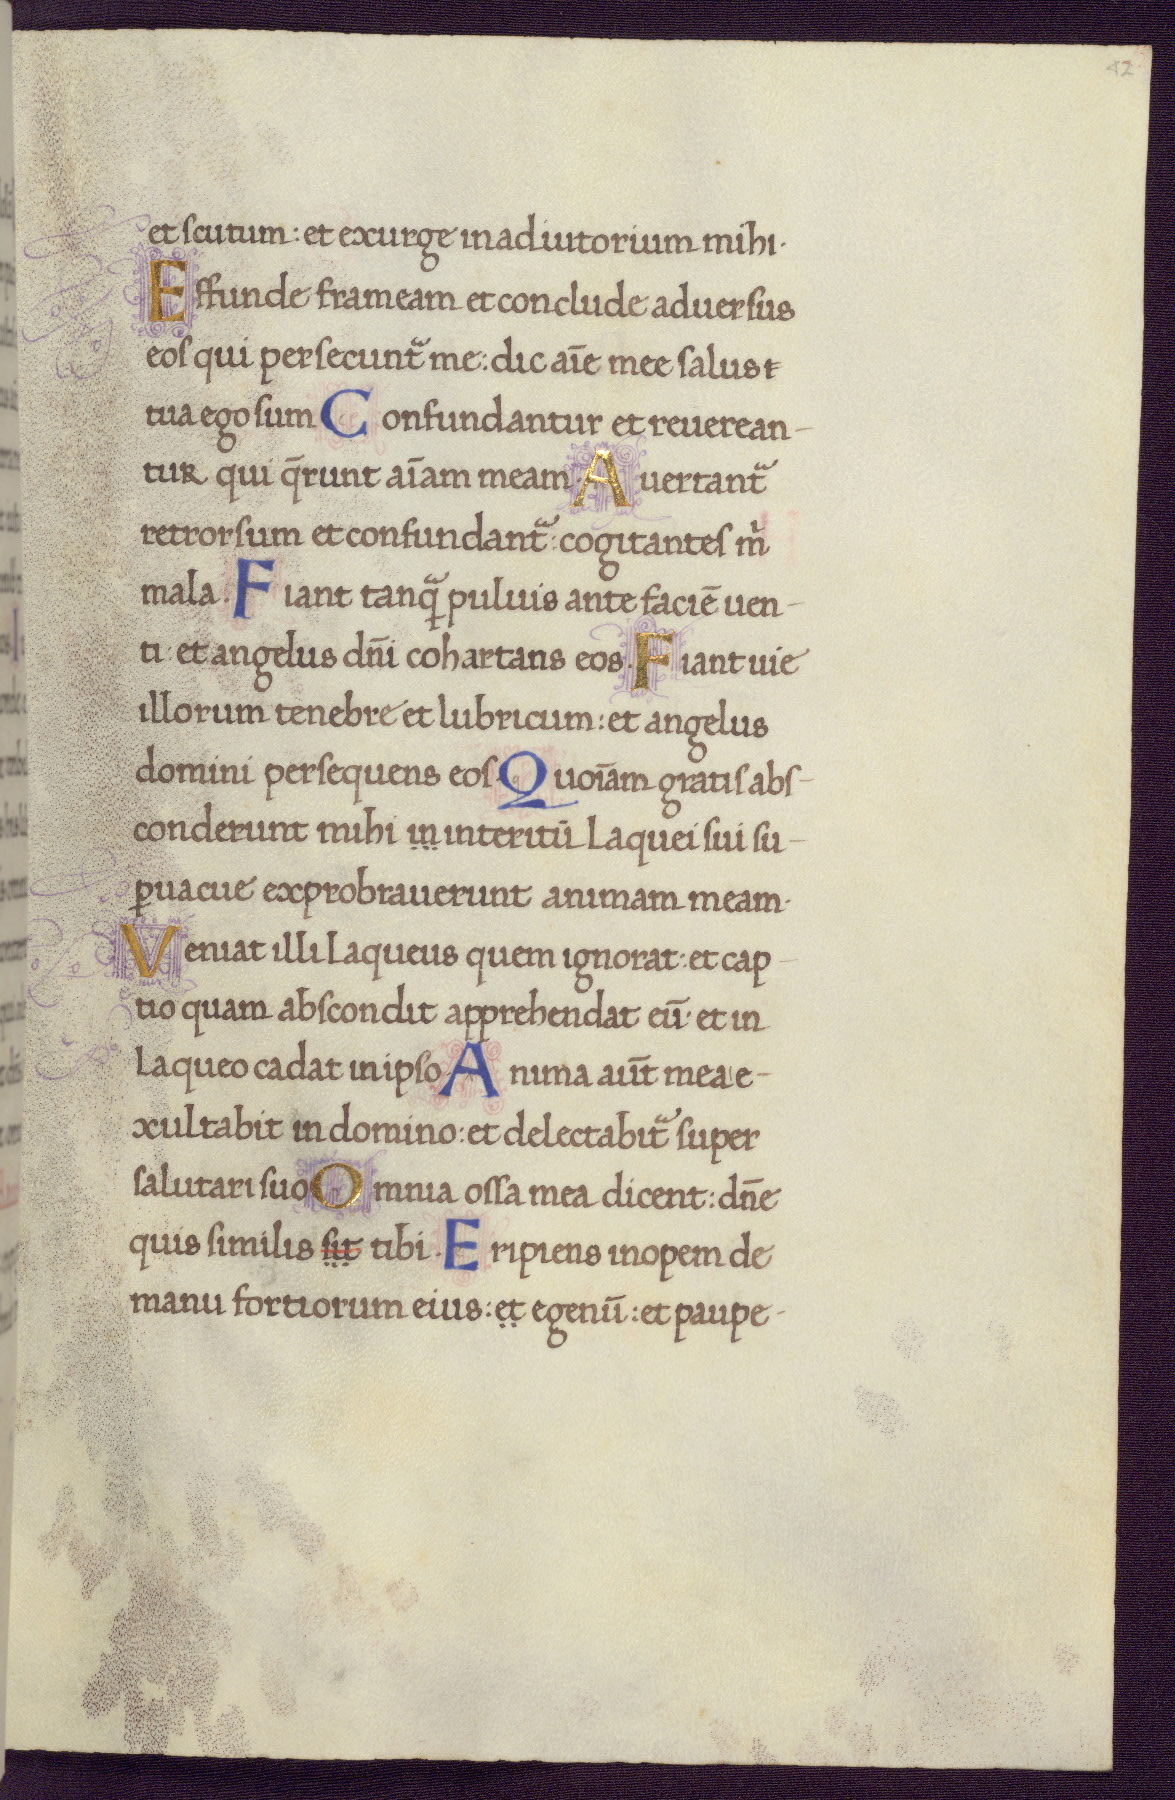 42
et scutum: et exurge in adiutorium mihi·
Effunde frameam et conclude aduersus
eos qui persecunt᷑ me: dic aīe mee salus t
tua ego sum Confundantur et reuerean-
tur qui q̄runt aīam meam· Auertant᷑
retrorsum et confundant᷑: cogitantes m̍
mala· Fiant tanq̄ puluis ante faciē uen-
ti: et angelus dn̄i cohartans eos· Fiant uie
illorum tenebre et lubricum: et angelus
domini persequens eos· Quoīam gratis abs-
conderunt mihi ịṇ interitū Laquei sui su-
ꝑuacue exprobrauerunt animam meam·
Veniat illi Laqueus quem ignorat: et cap-
tio quam abscondit apprehendat eū· et in
Laqueo cadat in ipso Anima aūt mea e-
xultabit in domino: et delectabit᷑ super
salutari suo Omnia ossa mea dicent: dn̄e
quis similis sit tibi· Eripiens inopem de
manu fortiorum eius: ẹṭ egenū: et paupe-